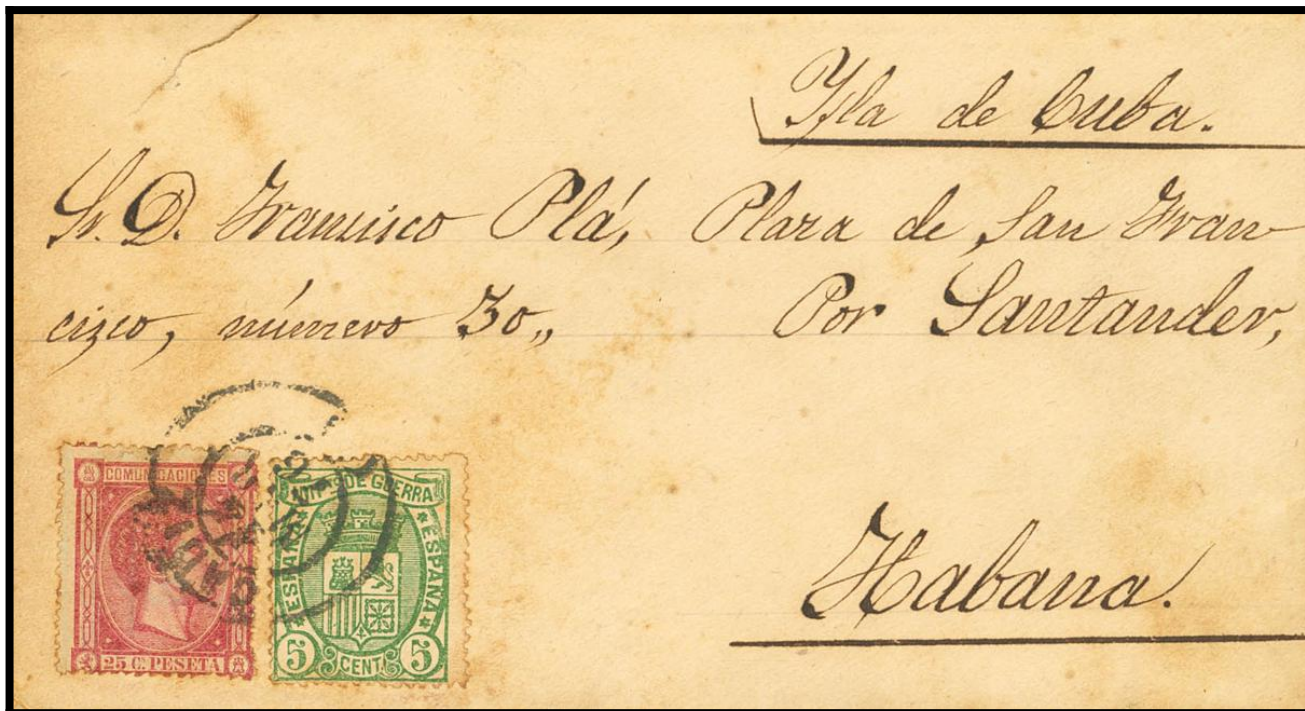 Ysla de Cuba.
Sr. D. Francisco Plá, Plaza de San Fran
cisco, número 30,, Por Santander,
Habana.
COMUNICACIONES
25 C. PESETA
IMPTO DE GUERRA
ESPAÑA ESPAÑA
5 CENT. 5